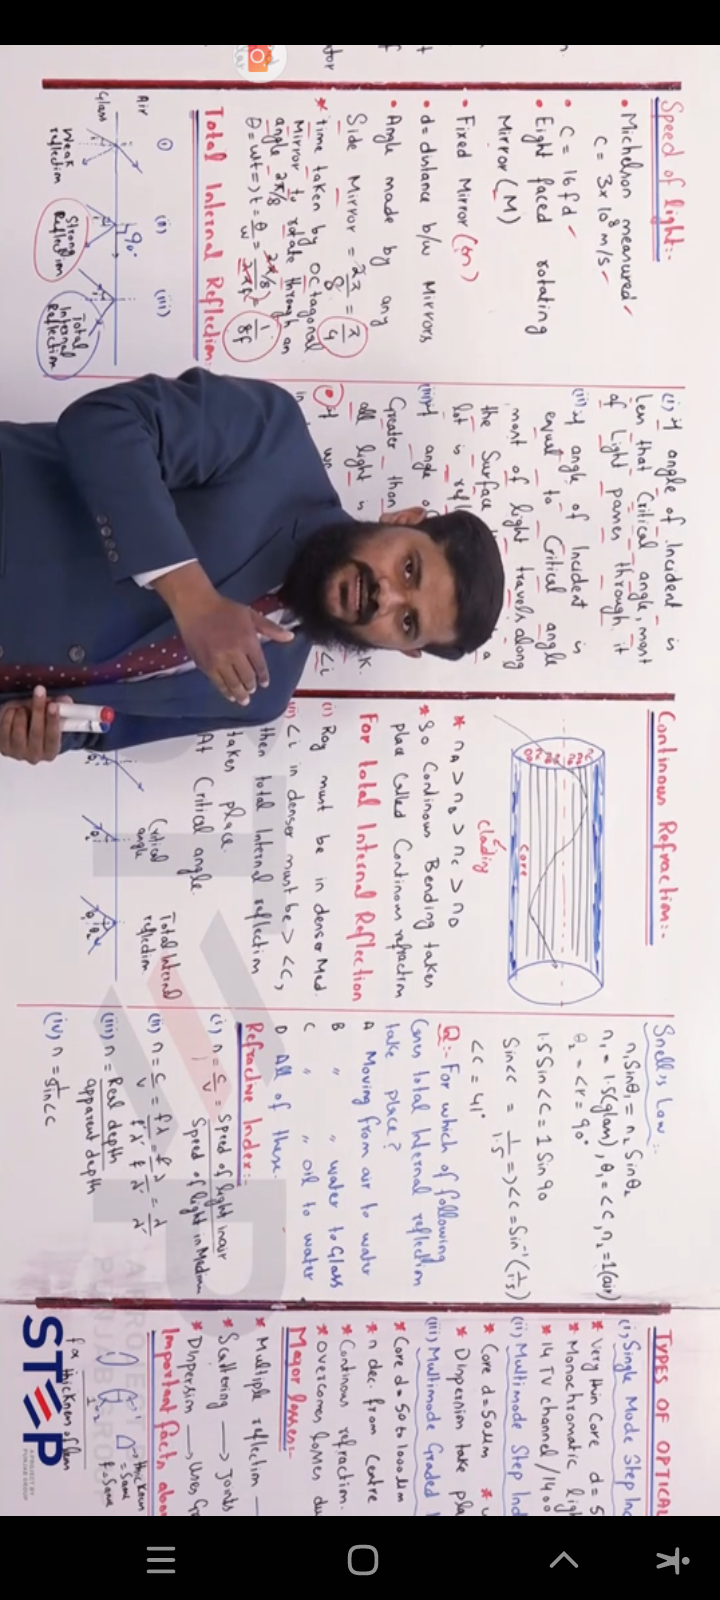 Speed of light:-
• Michelson measured
C = 3x10⁸ m/s
• C = 16fd
• Eight faced rotating
Mirror (M)
• Fixed Mirror (m)
• d = distance b/w Mirrors
• Angle made by any
Side Mirror = 2π/8 = π/4
* time taken by octagonal
Mirror to rotate through an
angle 2π/8
θ = wt => t = θ/w = (2π/8)/2πf = 1/8f
Total Internal Reflection:
(i) (ii) (iii)
Air
Glass
90°
Weak reflection
Strong Reflection
Total Internal Reflection
(i) If angle of Incident is
Less that Critical angle, most
of Light passes through it
(ii) If angle of Incident is
equal to Critical angle
most of light travels along
the Surface
lot is
(iii) If angle
Greater than
all light is
Continous Refraction:-
core
clading
* nA > nB > nC > nD
* So Continous Bending takes
place called Continous refraction
For total Internal Reflection
(i) Ray must be in denser Med.
(ii) <i in denser must be > <C,
then total Internal reflection
takes place.
At Critical angle.
Critical angle
Total Internal reflection.
Snell's Law:-
n₁Sinθ₁ = n₂ Sinθ₂
n₁ = 1.5 (glass), θ₁ = <C, n₂ = 1 (air)
θ₂ = <r = 90°
1.5 Sin<C = 1 Sin 90
Sin<C = 1/1.5 => <C = Sin⁻¹(1/1.5)
<C = 41°
Q:- For which of following
Cases total Internal reflection
take place?
A Moving from air to water
B " " water to Glass
C " " oil to water
D All of these.
Refractive Index:-
(i) n = c/v = Speed of light in air / Speed of light in Medium
(ii) n = c/v = fλ/f'λ' = fλ/fλ' = λ/λ'
(iii) n = Real depth / apparent depth
(iv) n = 1/Sin<C
TYPES OF OPTICAL
(i) Single Mode Step Ind
* Very thin Core d = 5
* Monochromatic ligh
* 14 TV channel / 1400
(ii) Multimode Step Ind
* Core d = 50um
* Dispersion take pla
(iii) Multimode Graded I
* Core d = 50 to 1000 um
* n dec. from Centre
* Continous refraction.
* overcomes losses du
Major losses:-
* Multiple reflection
* Scattering → Joints
* Dispersion → Uses Gr
Important facts abou
thickness = Same
f = Same
f ∝ 1/thickness of lens
STEP
A PROJECT BY PUNJAB GROUP